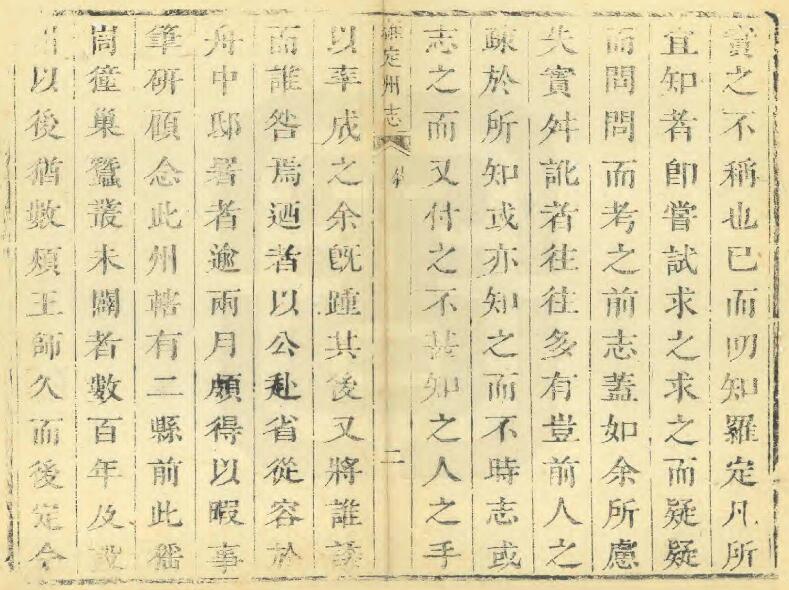 實之不稱也已而叨知羅定凡所
宜知者卽嘗試求之求之而疑疑
而問問而考之前志蓋如余所慮
失實舛訛者往往多有豈前人之
疎於所知或亦知之而不時志或
志之而又付之不甚知之人之手
羅定州志 二
以幸成之余旣踵其後又將誰諉
而誰咎焉迺者以公赴省從容於
舟中邸署者逾兩月頗得以暇事
筆硏顧念此州轄有二縣前此猺
峝獞巢蠶叢未闢者數百年及設
以後猶數煩王師久而後定今